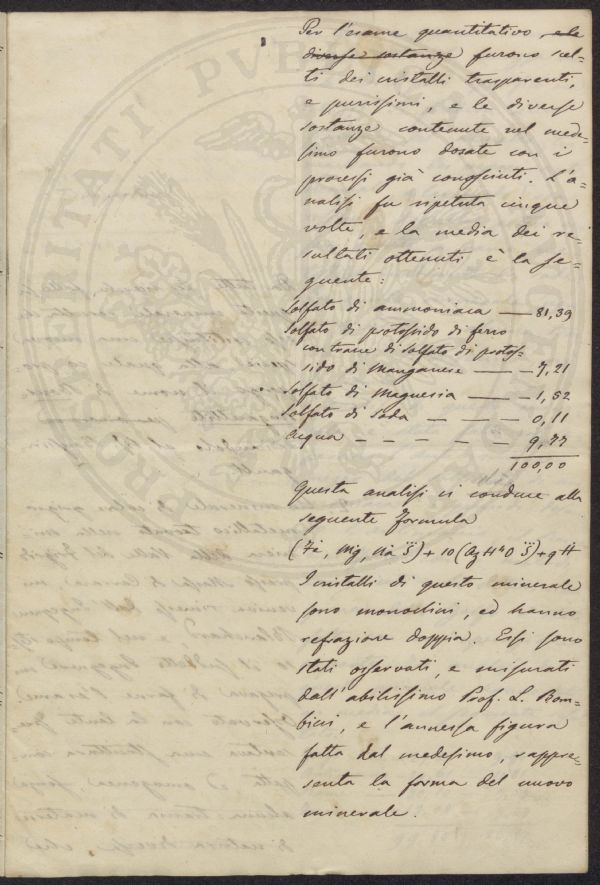 Per l'esame quantitativo, e le
diverse sostanze furono scel-
ti dei cristalli trasparenti,
e purissimi, e le diverse
sostanze contenute nel mede-
simo furono dosate con i
processi già conosciuti. L'a-
nalisi fu ripetuta cinque
volte, e la media dei re-
sultati ottenuti è la se-
guente:
Solfato di ammoniaca — 81,39
Solfato di protossido di ferro
con tracce di solfato di protos-
sido di manganese — — 7,21
Solfato di Magnesia — — 1,52
Solfato di Soda — — — 0,11
Acqua — — — — — 9,77
100,00
Questa analisi ci conduce alla
seguente formula
(Fe, Mg, Na S) + 10 (Az H4 O S) + 9 H
I cristalli di questo minerale
sono monoclini, ed hanno
refrazione doppia. Essi sono
stati osservati, e misurati
dall'abilissimo Prof. L. Bom-
bicci, e l'annessa figura
fatta dal medesimo, rappre-
senta la forma del nuovo
minerale.